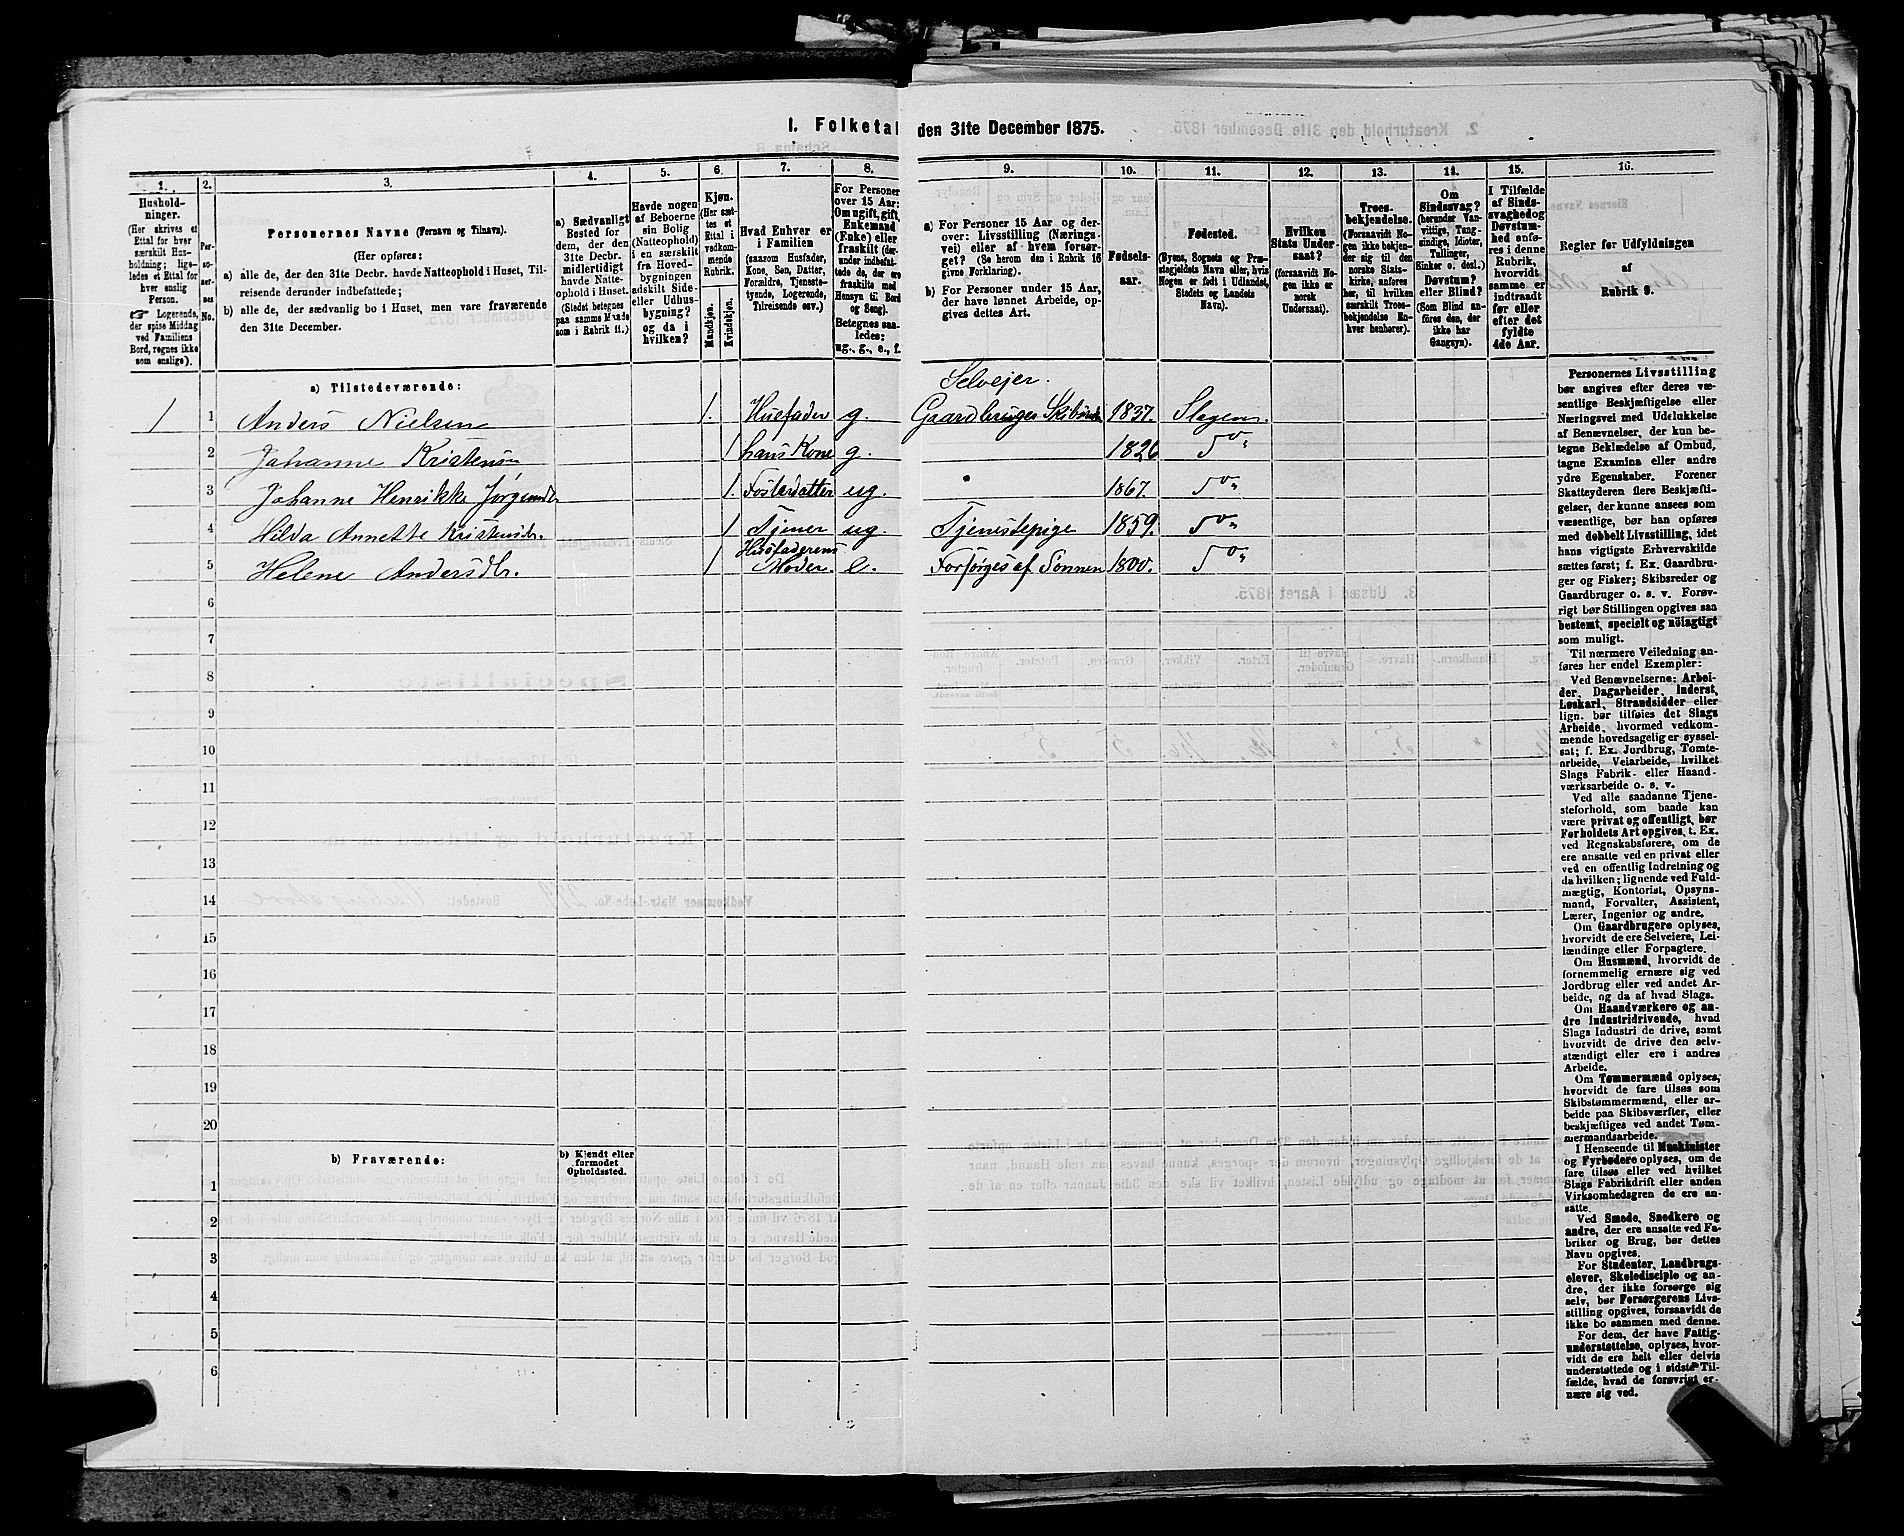 1. Folketal den 31te December 1875.
1.
Hushold-
ninger.
(Her skrives et
Ettal for hver
særskilt Hus-
holdning; lige-
ledes et Ettal for
hver enslig
Person.
☞ Logerende,
der spise Middag
ved Familiens
Bord, regnes ikke
som enslige).
2.
3.
Personernes Navne (Fornavn og Tilnavn).
(Her opføres:
a) alle de, der den 31te Decbr. havde Natteophold i Huset, Til-
reisende derunder indbefattede;
b) alle de, der sædvanlig bo i Huset, men vare fraværende
den 31te December.
4.
a) Sædvanligt
Bosted for
dem, der den
31te Decbr.
midlertidigt
havde Natte-
ophold i Huset.
(Stedet betegnes
paa samme Maade
som i Rubrik 11.)
5.
Havde nogen
af Beboerne
sin Bolig
(Natteophold)
i en særskilt
fra Hoved-
bygningen
adskilt Side-
eller Udhus-
bygning?
og da i
hvilken?
6.
Kjøn.
(Her sæt-
tes et
Ettal i
vedkom-
mende
Rubrik.
Mandkjøn.
Kvindekjøn.
7.
Hvad Enhver er
i Familien
(saasom Husfader,
Kone, Søn, Datter,
Forældre, Tjeneste-
tyende, Logerende,
Tilreisende osv.)
8.
For Personer
over 15 Aar:
Om ugift, gift,
Enkemand
(Enke) eller
fraskilt (der-
under indbefat-
tede de, der ere
fraskilte med
Hensyn til Bord
og Seng).
Betegnes saa-
ledes:
ug., g., e., f.
9.
a) For Personer 15 Aar og der-
over: Livsstilling (Nærings-
vei) eller af hvem forsør-
get? (Se herom den i Rubrik 16
givne Forklaring).
b) For Personer under 15 Aar,
der have lønnet Arbeide, op-
gives dettes Art.
10.
Fødsels-
aar.
11.
Fødested.
(Byens, Sognets og Præ-
stegjeldets Navn eller, hvis
Nogen er født i Udlandet,
Stedets og Landets
Navn).
12.
Hvilken
Stats Under-
saat?
(forsaavidt No-
gen ikke er
norsk
Undersaat).
13.
Troes-
bekjendelse.
(Forsaavidt No-
gen ikke bekjen-
der sig til den
norske Stats-
kirke, anføres
her, til hvilken
særskilt Troes-
bekjendelse En-
hver henhører).
14.
Om
Sindssvag?
(herunder Van-
vittige, Tung-
sindige, Idioter,
Tullinger,
Sinker o. desl.)
Døvstum?
eller Blind?
(Som Blind an-
føres den, der
ikke har
Gangsyn).
15.
I Tilfælde
af Sinds-
svaghed og
Døvstum-
hed anfø-
res i denne
Rubrik,
hvorvidt
samme er
indtraadt
før eller
efter det
fyldte
4de Aar.
16.
Regler for Udfyldningen
af
Rubrik 9.
a) Tilstedeværende:
Selvejer.
1 1 Anders Nielsen 1. Husfader g. Gaardbruger 1837. Slagen.
2 Johanne Kristensen 1 hans Kone g. 1826 Do
3 Johanne Henrikke Jørgensdr. 1. Fosterdatter ug. 1867. Do
4 Hilda Annette Kristensdr. 1 Tjener ug. Tjenestepige 1859. Do
5 Helene Andersdr. 1 Husfaderens Moder. e. Forsørges af Sønnen 1800. Do
6
7
8
9
10
11
12
13
14
15
16
17
18
19
20
b) Fraværende:
b) Kjendt eller
formodet
Opholdssted.
1
2
3
4
5
6
Personernes Livsstilling
bør angives efter deres væ-
sentlige Beskjæftigelse eller
Næringsvei med Udelukkelse
af Benævnelser, der kun be-
tegne Beklædelse af Ombud,
tagne Examina eller andre
ydre Egenskaber. Forener
Skatteyderen flere Beskjæfti-
gelser, der kunne ansees som
væsentlige, bør han opføres
med dobbelt Livsstilling, idet
hans vigtigste Erhvervskilde
sættes først; f. Ex. Gaardbru-
ger og Fisker; Skibsreder og
Gaardbruger o. s. v. Forøv-
rigt bør Stillingen opgives saa
bestemt, specielt og nöiagtigt
som muligt.
Til nærmere Veiledning an-
føres her endel Exempler:
Ved Benævnelserne: Arbei-
der, Dagarbeider, Inderst,
Løskarl, Strandsidder eller
lign. bør tilføies det Slags
Arbeide, hvormed vedkom-
mende hovedsagelig er syssel-
sat; f. Ex. Jordbrug, Tomte-
arbeide, Veiarbeide, hvilket
Slags Fabrik- eller Haand-
værksarbeide o. s. v.
Ved alle saadanne Tjene-
steforhold, som baade kan
være privat og offentligt, bør
Forholdets Art opgives, t. Ex.
ved Regnskabsførere, om de
ere ansatte ved en privat eller
ved en offentlig Indretning og
da hvilken; lignende ved Fuld-
mægtig, Kontorist, Opsyns-
mand, Forvalter, Assistent,
Lærer, Ingeniør og andre.
Om Gaardbrugere oplyses,
hvorvidt de ere Selveiere, Lei-
lændinge eller Forpagtere.
Om Husmænd, hvorvidt de
fornemmelig ernære sig ved
Jordbrug eller ved andet Ar-
beide, og da af hvad Slags.
Om Haandværkere og an-
dre Industridrivende, hvad
Slags Industri de drive, samt
hvorvidt de drive den selv-
stændigt eller ere i andres
Arbeide.
Om Tømmermænd oplyses,
hvorvidt de fare tilsøs som
Skibstømmermænd, eller ar-
beide paa Skibsværfter, eller
beskjæftiges ved andet Tøm-
mermandsarbeide.
I Henseende til Maskinister
og Fyrbødere oplyses, om de
fare tilsøs eller ved hvilket
Slags Fabrikdrift eller anden
Virksomhedsgren de ere an-
satte.
Ved Smede, Snedkere og
andre, der ere ansatte ved Fa-
briker og Brug, bør dettes
Navn opgives.
For Studenter, Landbrugs-
elever, Skoledisciple og an-
dre, der ikke forsørge sig
selv, bør Forsørgerens Livs-
stilling opgives, forsaavidt de
ikke bo sammen med denne.
For dem, der have Fattig-
understøttelse, oplyses, hvor-
vidt de ere helt eller delvis
understøttede og i sidste Til-
fælde, hvad de forøvrigt er-
nære sig ved.